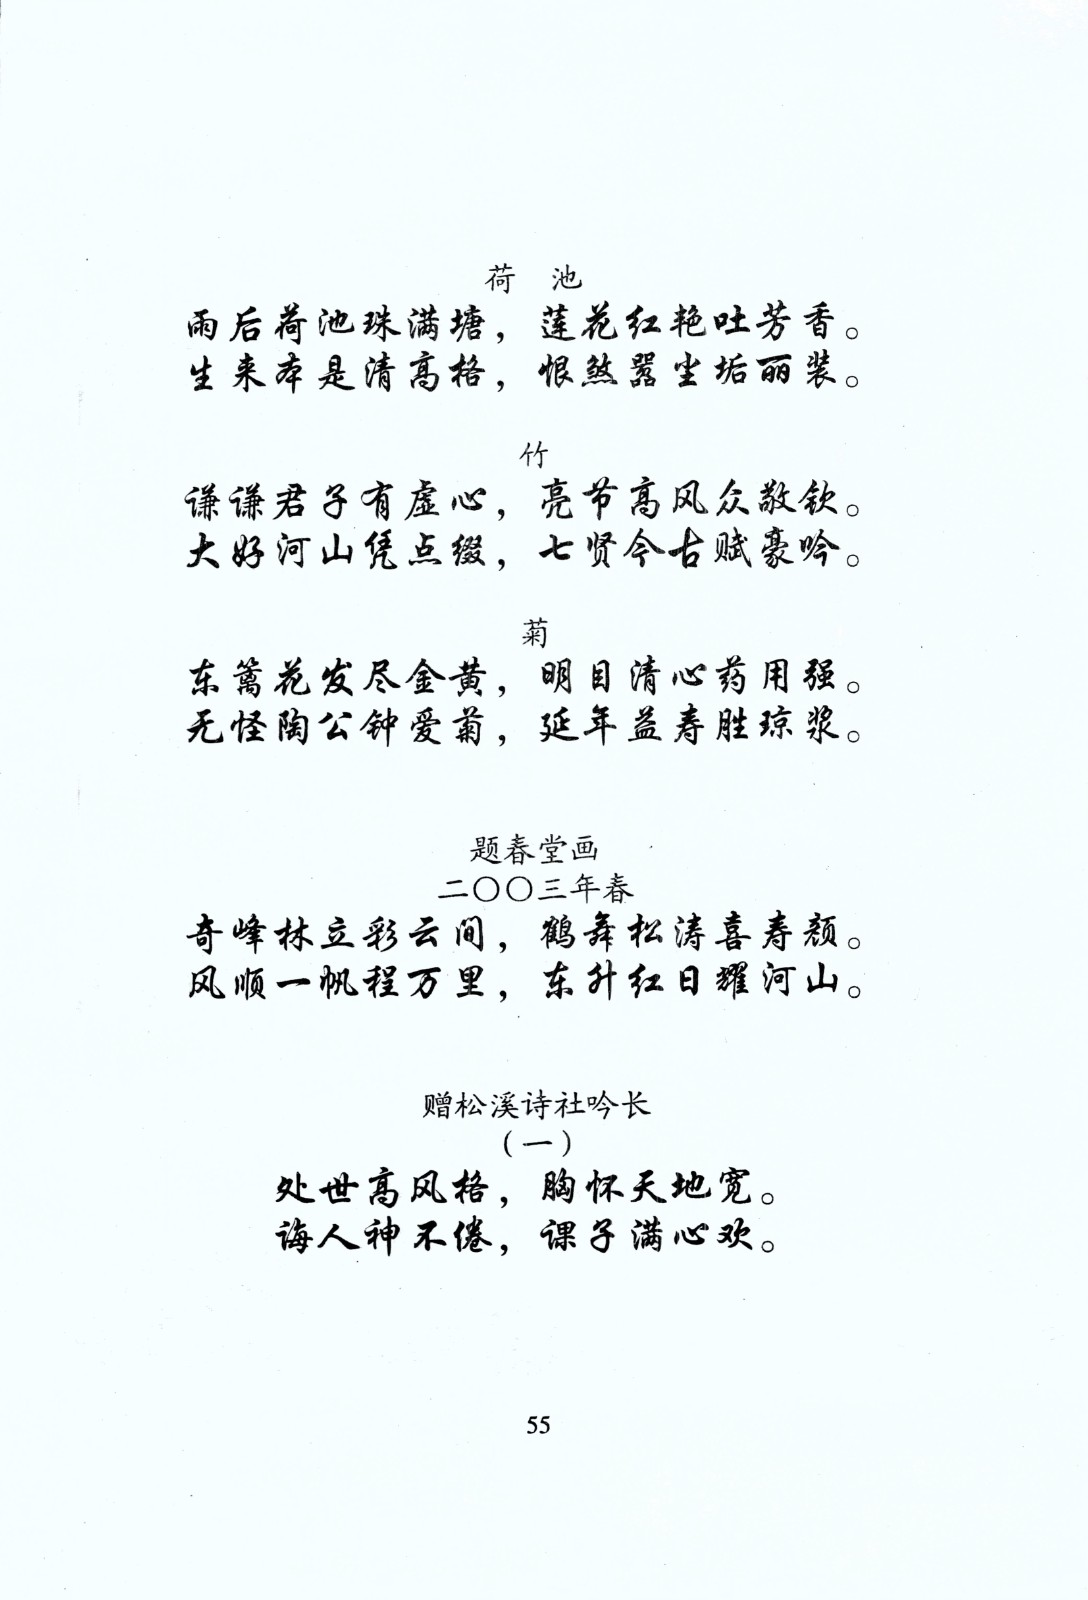 荷 池
雨后荷池珠满塘，莲花红艳吐芳香。
生来本是清高格，恨煞嚣尘垢丽装。
竹
谦谦君子有虚心，亮节高风众敬钦。
大好河山凭点缀，七贤今古赋豪吟。
菊
东篱花发尽金黄，明目清心药用强。
无怪陶公钟爱菊，延年益寿胜琼浆。
题春堂画
二〇〇三年春
奇峰林立彩云间，鹤舞松涛喜寿颜。
风顺一帆程万里，东升红日耀河山。
赠松溪诗社吟长
（一）
处世高风格，胸怀天地宽。
诲人神不倦，课子满心欢。
55